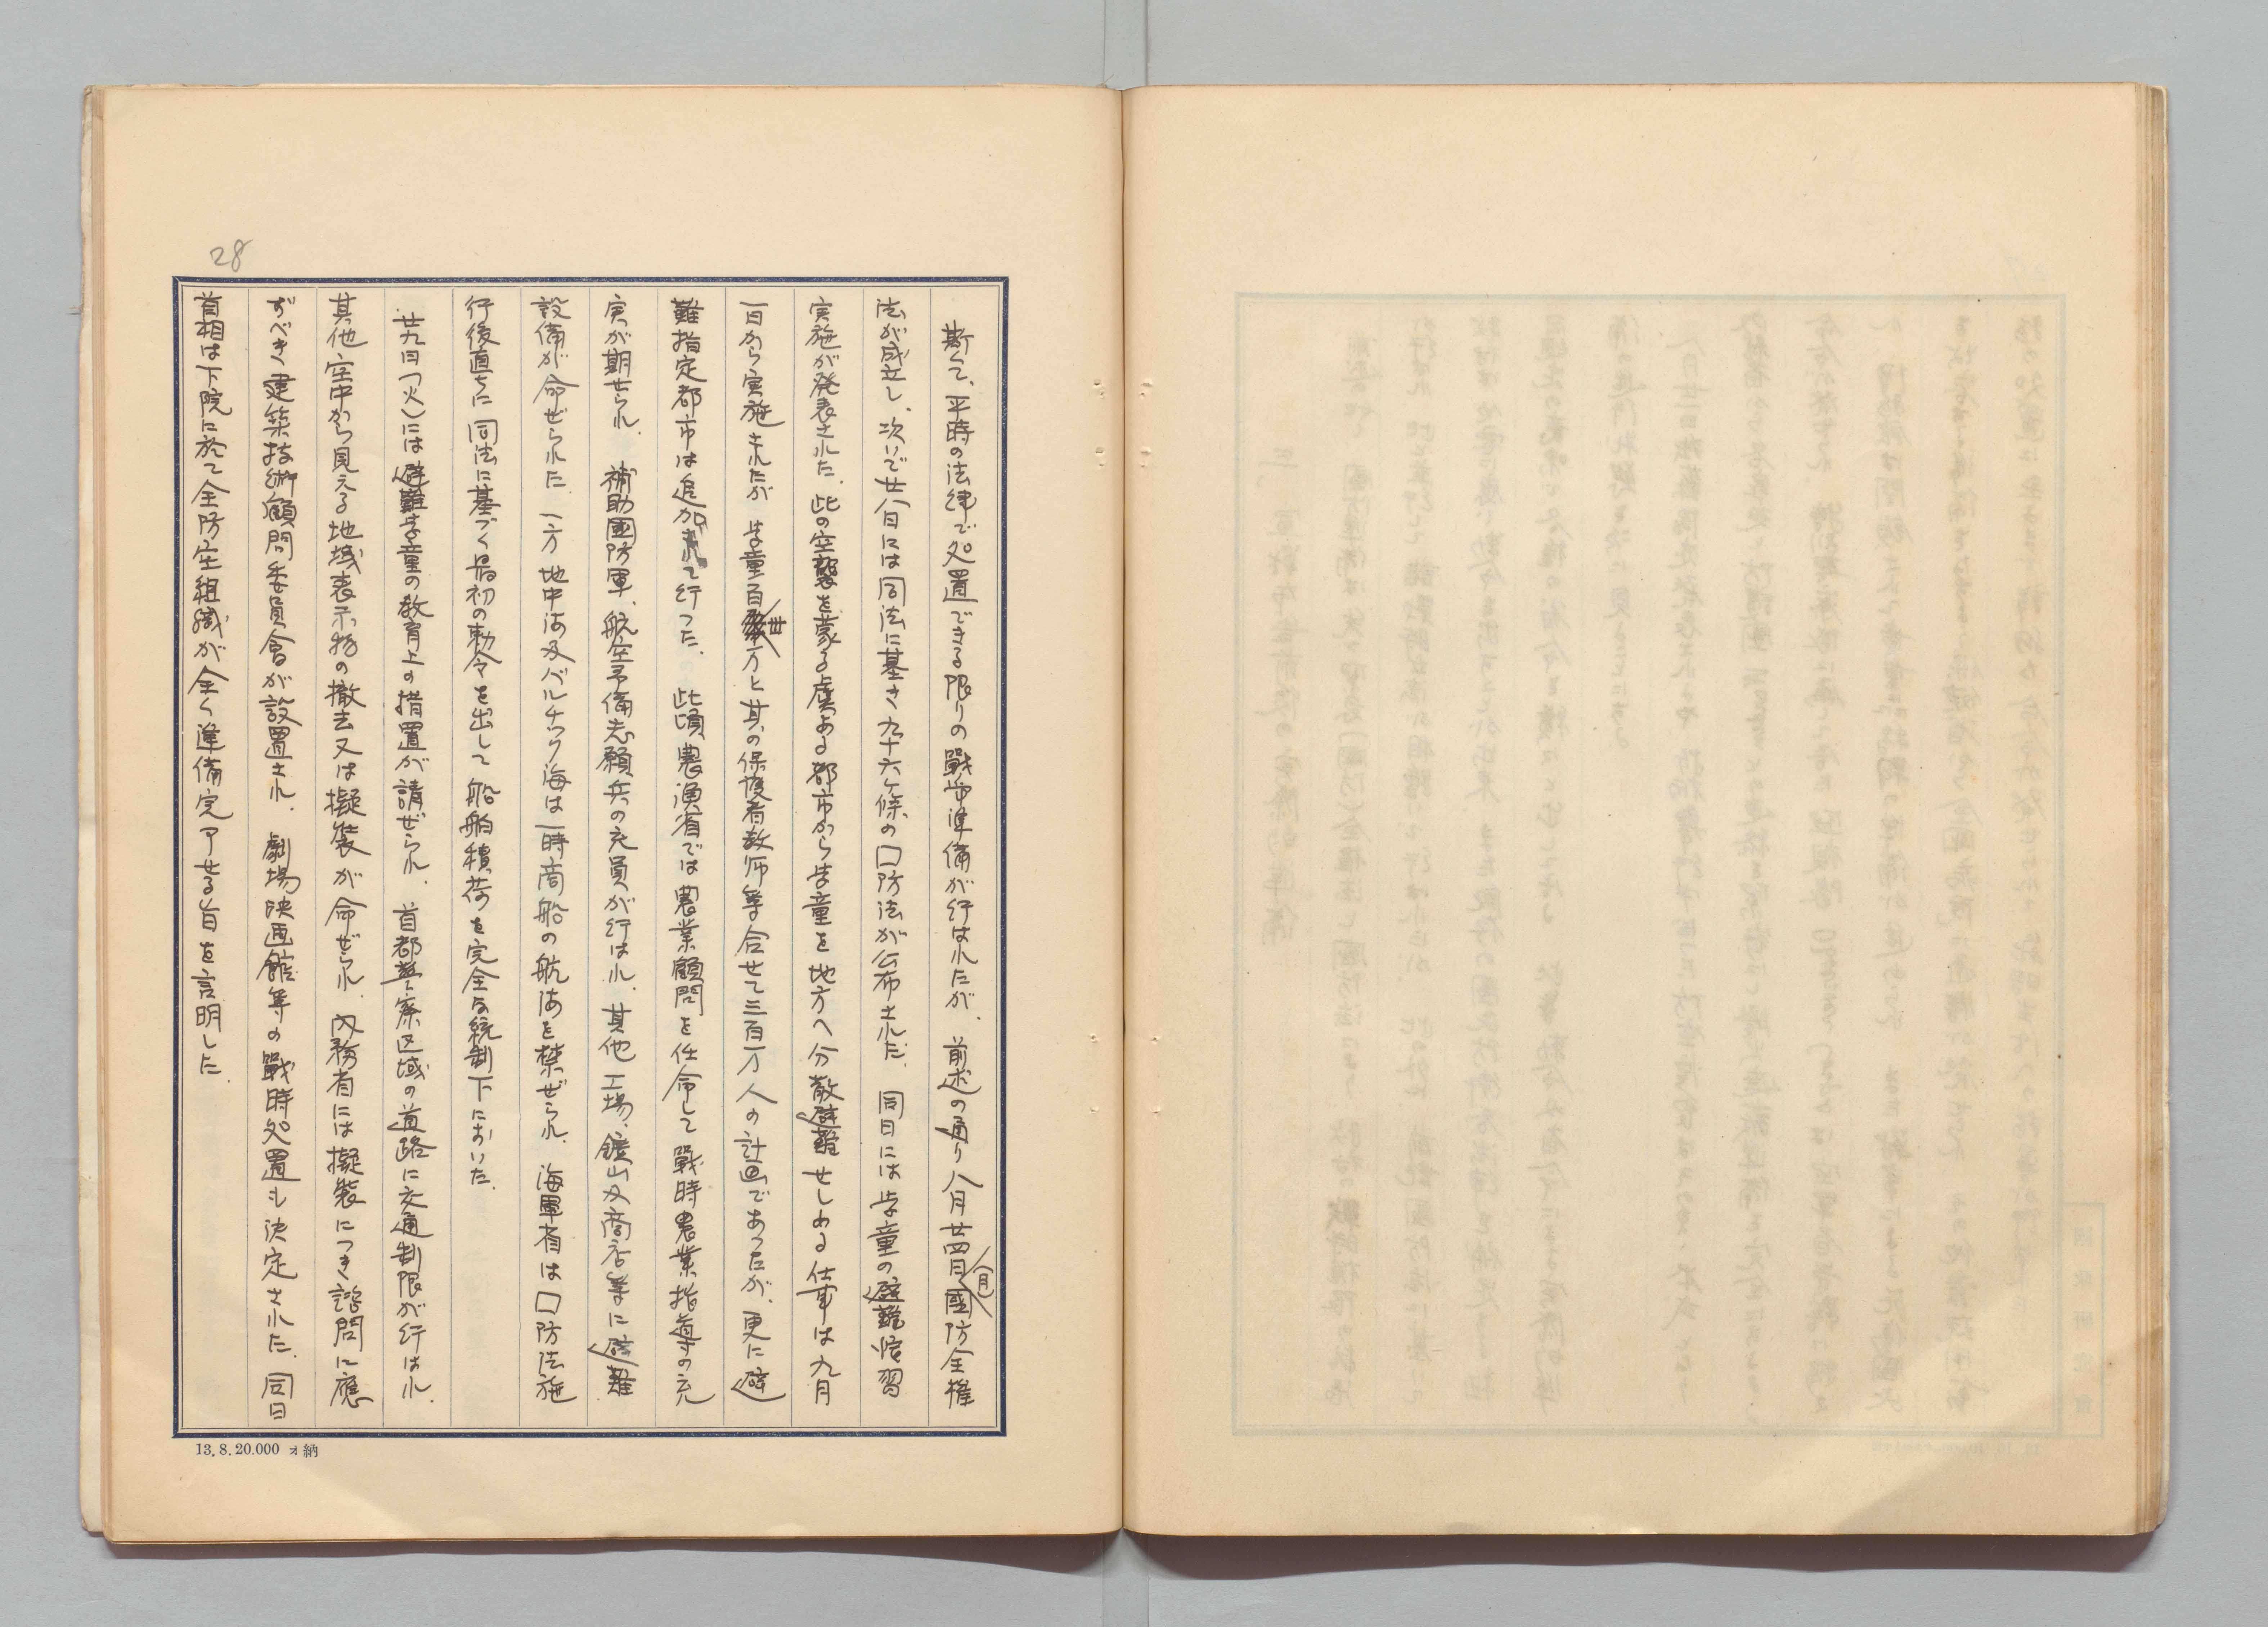 28
斯くて、平時の法律で処置できる限りの戰爭準備が行はれたが、前述の通り八月廿四日(月)國防全權
法が成立し、次いで廿八日には同法に基き九十六ヶ條の口防法が公布された。同日には学童の避難演習
実施が発表された。此の空襲を蒙る虞ある都市から学童を地方へ分散避難せしめる仕事は九月
一日から実施されたが学童百卅万と其の保護者教師等合せて三百万人の計画であつたが、更に避
難指定都市は追加されて行つた。此頃農漁省では農業顧問を任命して戰時農業指導の充
実が期せられ、補助國防軍、航空予備志願兵の充員が行はれ、其他工場、鑛山及商店等に避難
設備が命ぜられた 一方地中海及バルチック海は一時商船の航海を禁ぜられ、海軍省は口防法施
行後直ちに同法に基づく最初の勅令を出して船舶積荷を完全な統制下においた。
廿九日(火)には避難学童の教育上の措置が講ぜられ、首都警察区域の道路に交通制限が行はれ、
其他空中から見える地域表示物の撤去又は擬装が命ぜられ、内務省には擬装につき諮問に應
ずべき建築技術顧問委員會が設置され、劇場映画館等の戰時処置も決定された、同日
首相は下院に於て全防空組織が全く準備完了せる旨を言明した。
13.8.20.000 オ納